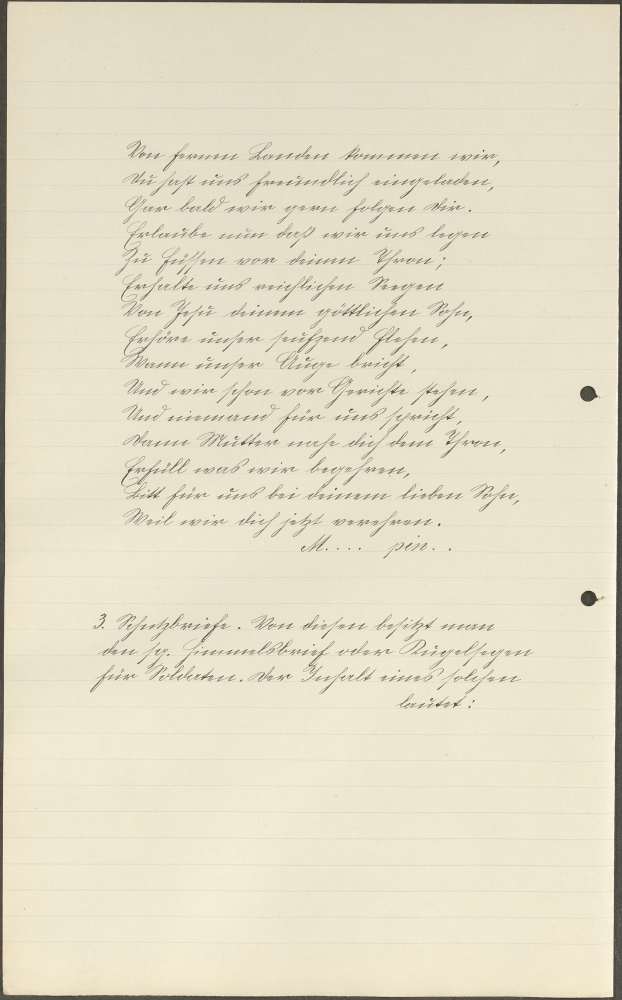 Von fernen Landen kommen wir,
Du hast uns freundlich eingeladen,
Gar bald wir gern folgen Dir.
Erlaube nun daß wir uns legen
Zu Füssen vor deinen Thron;
Erhalte uns reichlichen Seegen
Von Jesu deinem göttlichen Sohn,
Erhöre unser seufzend Flehen,
Wann unser Auge bricht,
Und wir schon vor Gerichte stehen,
Und niemand für uns spricht,
Dann Mutter nahe dich dem Thron,
Erfüll was wir begehren,
Bitt für uns bei deinem lieben Sohn,
Weil wir dich jetzt verehren.
M.... pin..
3. Schutzbriefe. Von diesen besitzt man
den sg. Himmelsbrief oder Kugelsegen
für Soldaten. Der Inhalt eines solchen
lautet: